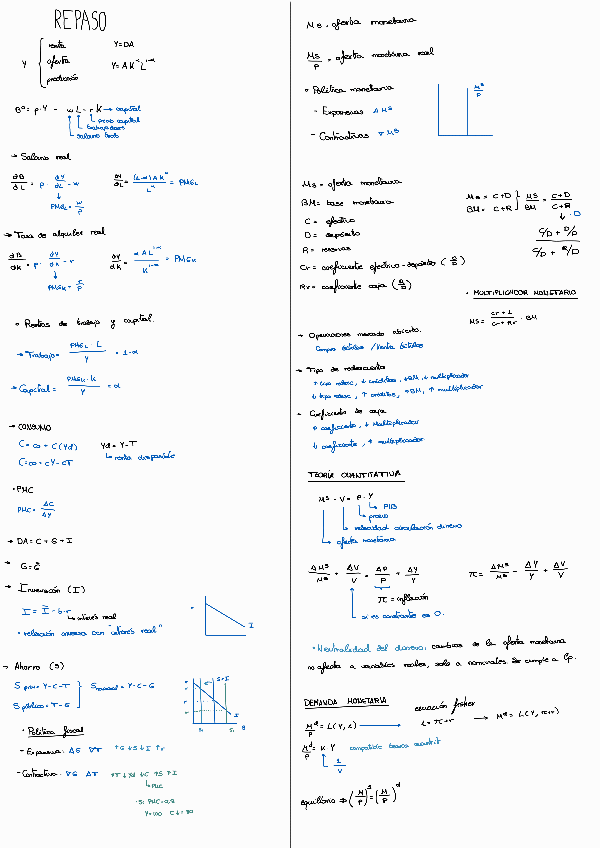 REPASO
Y
renta Y=DA
oferta Y= A K^α L^1-α
producción
Bº= p·Y - wL - rK → capital
precio capital
trabajadores
salario
→ Salario real
∂B/∂L = p · ∂Y/∂L - w
∂Y/∂L = (1-α) A K^α / L^α = PMgL
PMgL = w/p
→ Tasa de alquiler real
∂B/∂K = p · ∂Y/∂K - r
∂Y/∂K = α A L^1-α / K^1-α = PMgK
PMgK = r/p
Rentas de trabajo y capital.
→ Trabajo = PMgL · L / Y = 1-α
→ Capital = PMgK · K / Y = α
→ CONSUMO
C = co + C(Yd) Yd = Y-T
C = co + cY - cT ↳ renta disponible
· PMC
PMC = ΔC/ΔY
→ DA = C + G + I
→ G = Ḡ
→ Inversión (I)
I = Ī - b·r
↳ interés real
· relación inversa con "interés real"
I
→ Ahorro (S)
S priv = Y-C-T
S público = T-G
S nacional = Y-C-G
S+I
I
· Política fiscal
- Expansiva: ΔG ∇T ↑G ↓S ↓I ↑r
- Contractiva: ∇G ΔT ↑T ↓Yd ↓C ↑S ↑I
↳ PMC
Si PMC = 0,8
Ms = oferta monetaria
Ms/P = oferta monetaria real
· Política monetaria
- Expansiva Δ Ms
- Contractiva ∇ Ms
Ms/P
Ms = oferta monetaria
BM = base monetaria
C = efectivo
D = depósito
R = reservas
Cr = coeficiente efectivo-depósito (C/D)
Rr = coeficiente caja (R/D)
Ms = C+D
BM = C+R
Ms/BM = C+D/C+R
↓ :D
C/D + D/D
C/D + R/D
· MULTIPLICADOR MONETARIO
Ms = cr + 1 / cr + rr · BM
→ Operaciones mercado abierto.
Compra bonos / Venta bonos
→ Tipo de redescuento
↑ tipo redesc, ↓ créditos, ↓BM, ↓ multiplicador
↓ tipo redesc, ↑ créditos, ↑BM, ↑ multiplicador
- Coeficiente de caja
↑ coeficiente, ↓ Multiplicador
↓ coeficiente, ↑ multiplicador
TEORÍA CUANTITATIVA
Ms · V = P · Y
↳ PIB
↳ precio
↳ velocidad circulación dinero
↳ oferta monetaria
ΔMs/Ms + ΔV/V = ΔP/P + ΔY/Y
π = ΔMs/Ms - ΔY/Y + ΔV/V
π = inflación
si es constante es 0.
· Neutralidad del dinero: cambios de la oferta monetaria
no afecta a variables reales, solo a nominales. Se cumple a lp.
DEMANDA MONETARIA
ecuación fisher
M^d/P = L(Y, i) → i = π + r → M^d = L(Y, π+r)
M^d/P = K Y
1/V
equilibrio ⇒ (M/P)^s = (M/P)^d